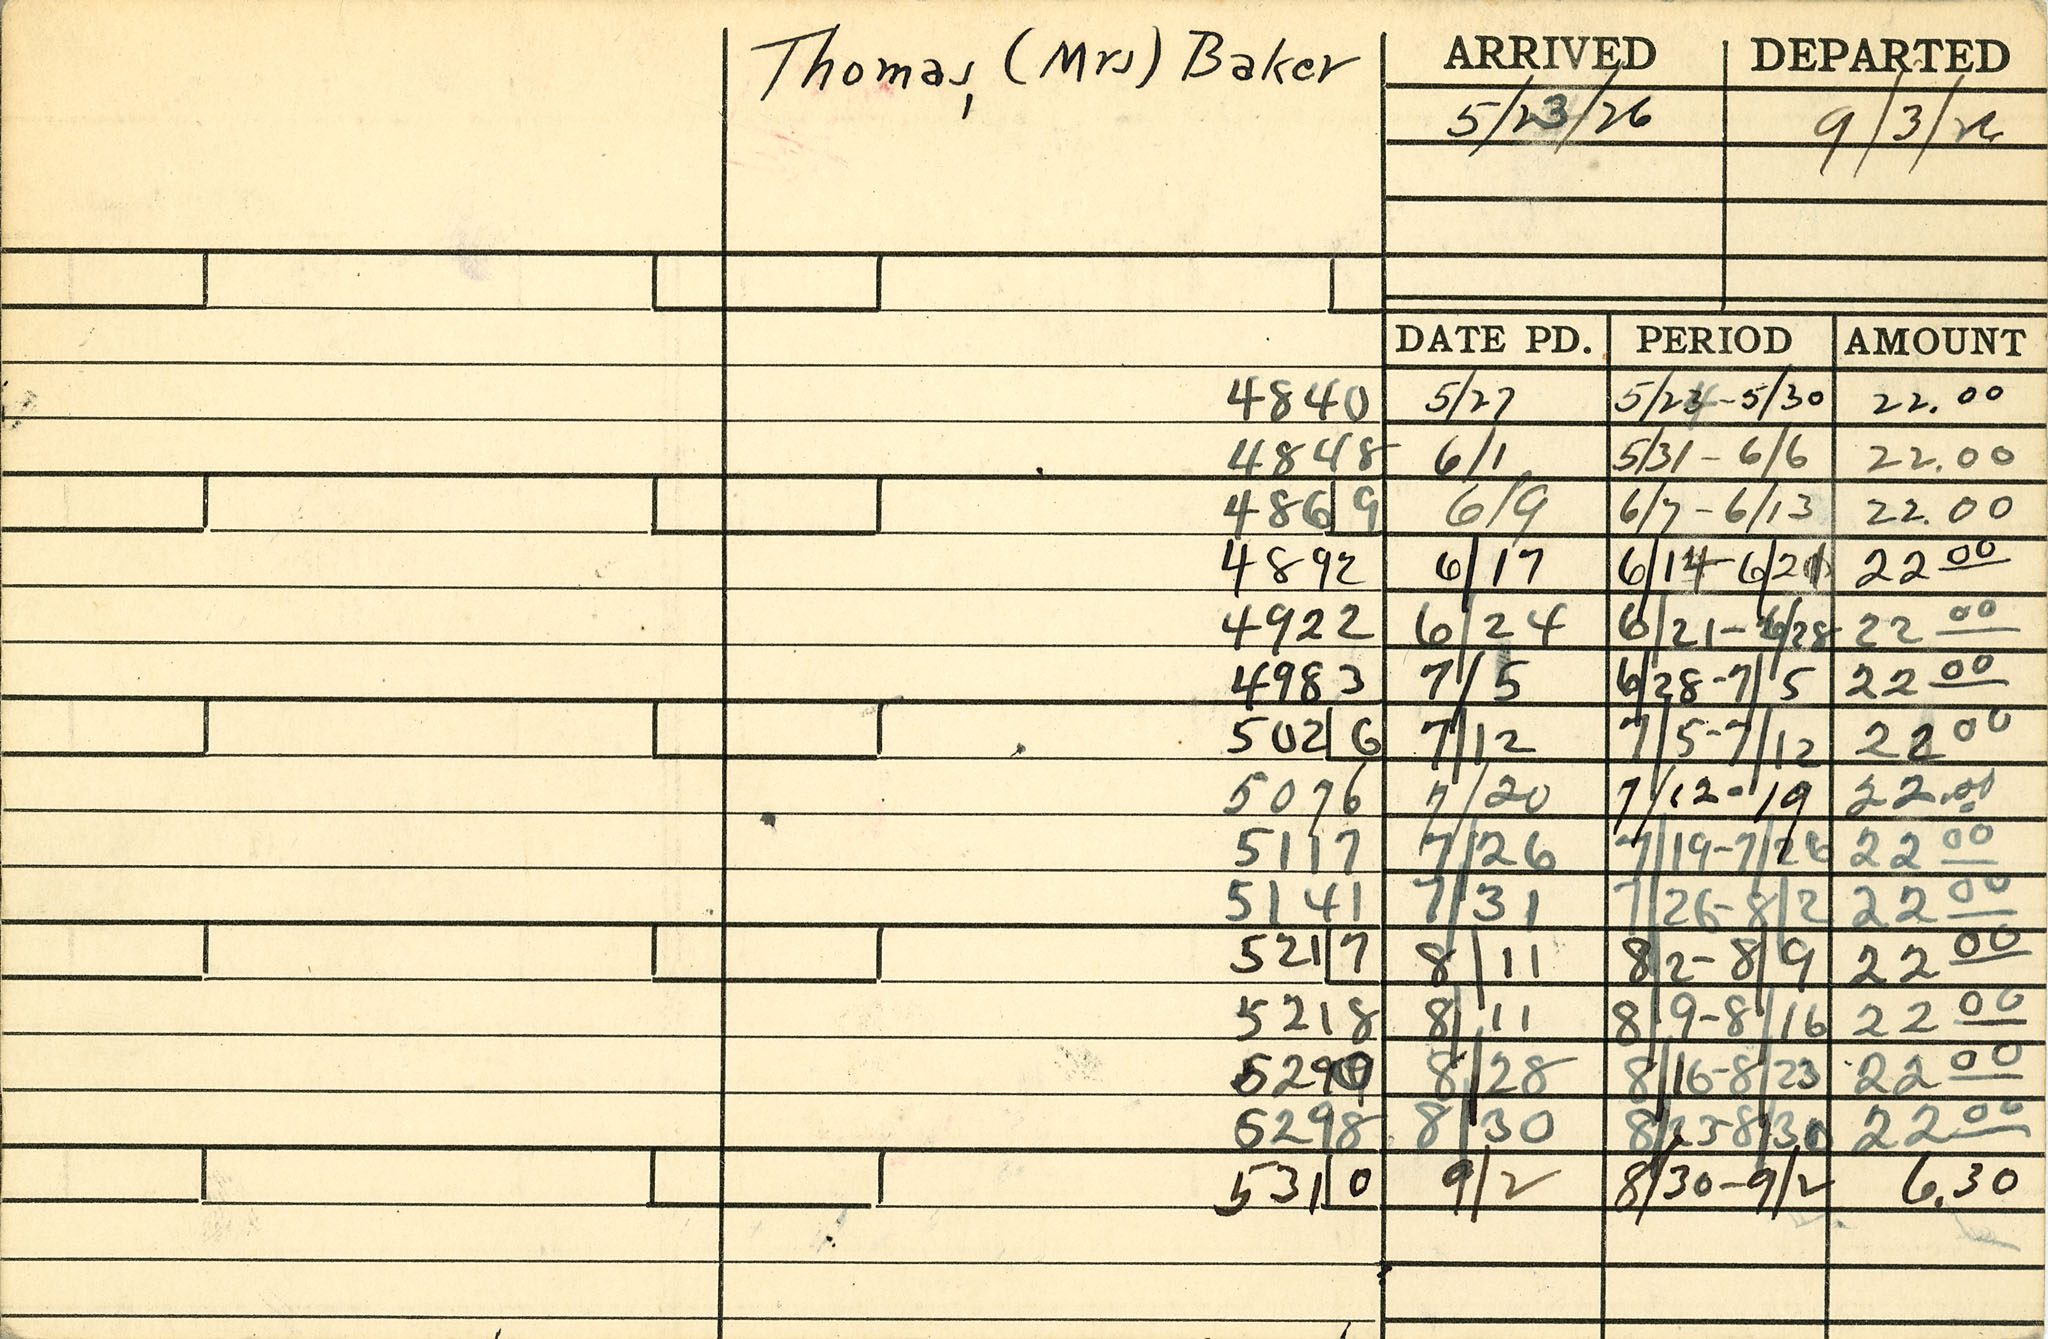 Thomas, (Mrs) Baker
ARRIVED DEPARTED
5/23/26 9/3/26
DATE PD. PERIOD AMOUNT
4840 5/27 5/23-5/30 22.00
4848 6/1 5/31-6/6 22.00
4869 6/9 6/7-6/13 22.00
4892 6/17 6/14-6/21 22 00
4922 6/24 6/21-6/28 22 00
4983 7/5 6/28-7/5 22 00
5026 7/12 7/5-7/12 22 00
5076 7/20 7/12-19 22.00
5117 7/26 7/19-7/26 22 00
5141 7/31 7/26-8/2 22 00
5217 8/11 8/2-8/9 22 00
5218 8/11 8/9-8/16 22 00
8/28 8/16-8/23 22 00
5298 8/30 8/23-8/30 22 00
5310 9/2 8/30-9/2 6.30